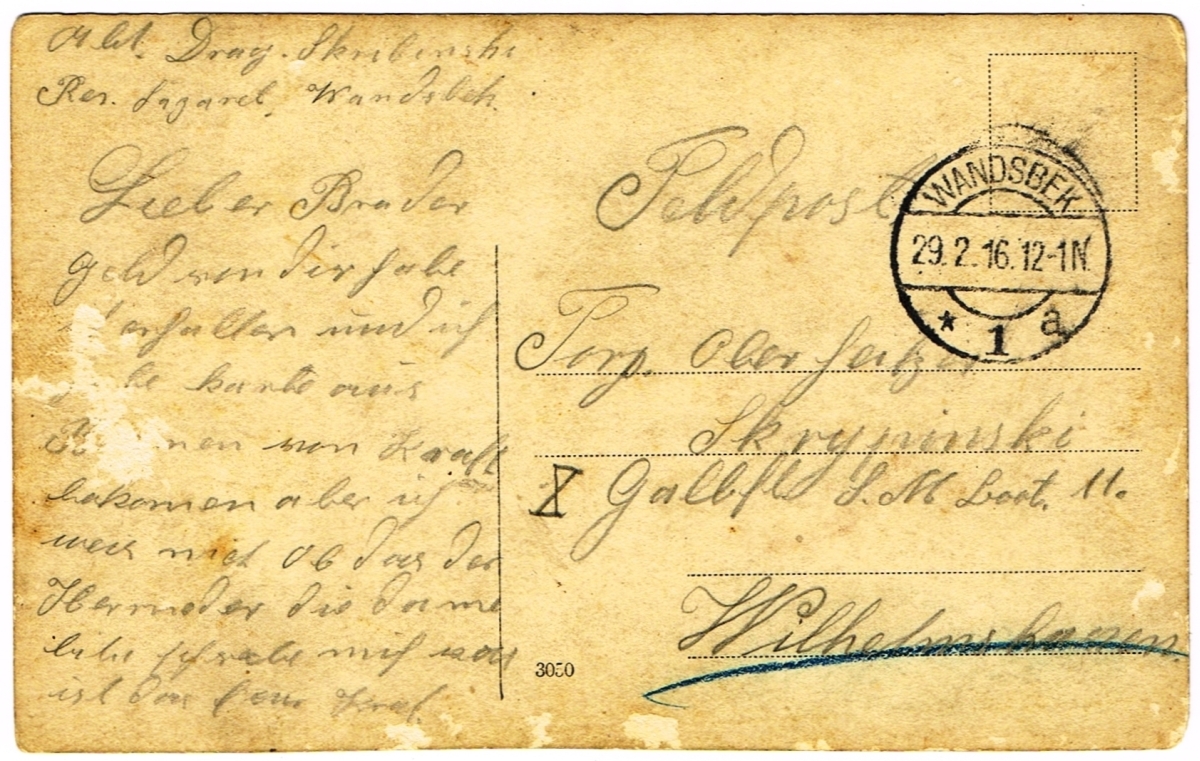 Abt. Drag. Skribinski
Res. Lazareb, Wandsbek.
Lieber Bruder
Geld von dir habe
erhalten und ich
be karte aus
men von Kraft
bekomen aber ich
weis nich ob das der
die dame
bite schreibe mich was
ist das
Feldpost
WANDSBEK
29.2.16.12-1N.
* 1 a
Torp. Oberheitzer
Skrypinski
X S.M. Boot. 11.
Wilhelmshaven
3050